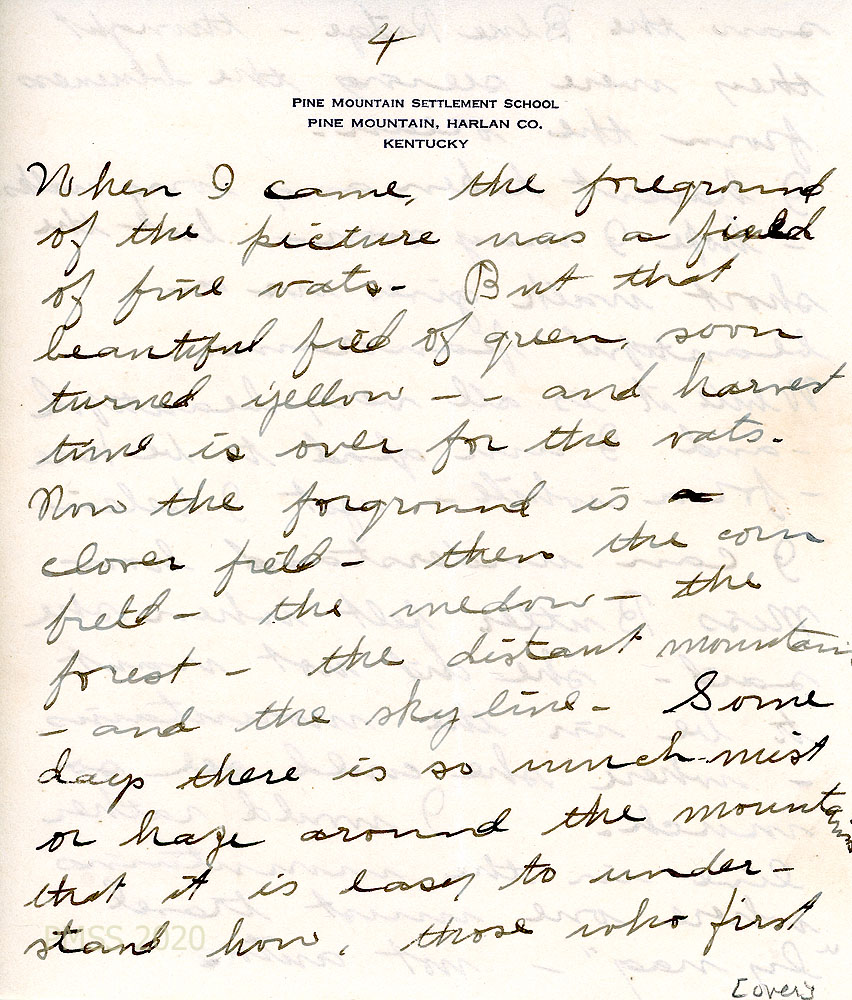 4
PINE MOUNTAIN SETTLEMENT SCHOOL
PINE MOUNTAIN, HARLAN CO.
KENTUCKY
When I came, the foreground
of the picture was a field
of fine oats- But that
beautiful field of green, soon
turned yellow - - and harvest
time is over for the oats.
Now the forground is a
clover field - then the corn
field - the medow - the
forest - the distant mountain
- and the sky line - Some
days there is so much mist
or haze around the mountains
that it is easy to under-
stand how, those who first
[over]
PMSS 2020